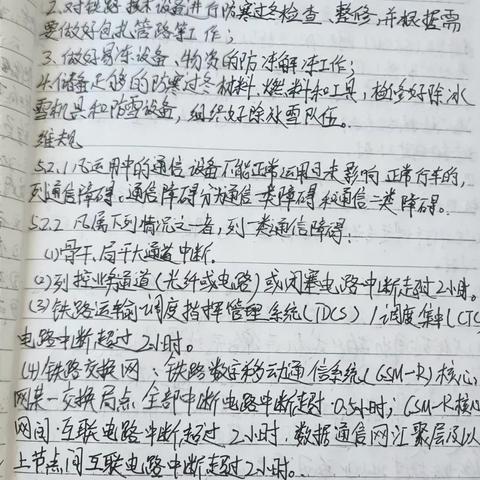 2、对铁路技术设备进行防寒过冬检查、整修,并根据需
要做好包扎管路等工作;
3、做好易冻设备、物资的防冻解冻工作;
4、储备足够的防寒过冬材料、燃料和工具,检修好除冰
雪机具和防雪设备,组织好除冰雪队伍。
维规
5.2.1 凡运用中的通信设备不能正常运用,影响正常行车的,
列通信障碍。通信障碍分为通信一类障碍和通信二类障碍。
5.2.2 凡属下列情况之一者,列一类通信障碍:
(1)骨干、局干大通道中断。
(2)列控业务通道(光纤或电路)或闭塞电路中断超过2小时。
(3)铁路运输调度指挥管理系统(TDCS)/调度集中(CTC
电路中断超过2小时。
(4)铁路交换网、铁路数字移动通信系统(GSM-R)核心
网某一交换局点全部中断电路中断超过0.5小时;GSM-R核心
网间互联电路中断超过2小时.数据通信网汇聚层及以
上节点间互联电路中断超过2小时。